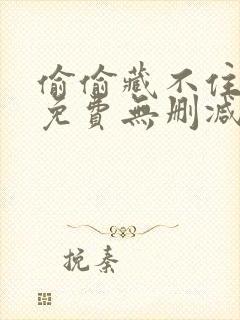 偷偷藏不住
免費無刪減
挽秦